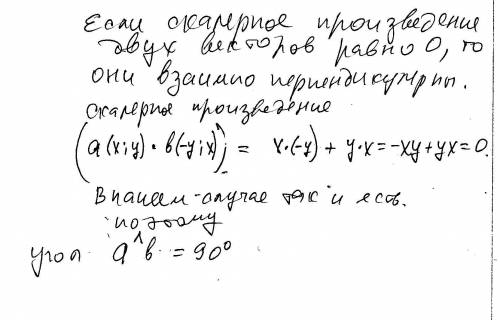 Если скалерное произведение
двух векторов равно 0, то
они взаимно перпендикулярны.
скалерное произведение
(a(x;y) · b(-y;x)) = x·(-y) + y·x = -xy + yx = 0.
В нашем случае так и есть.
поэтому
угол a^b = 90°